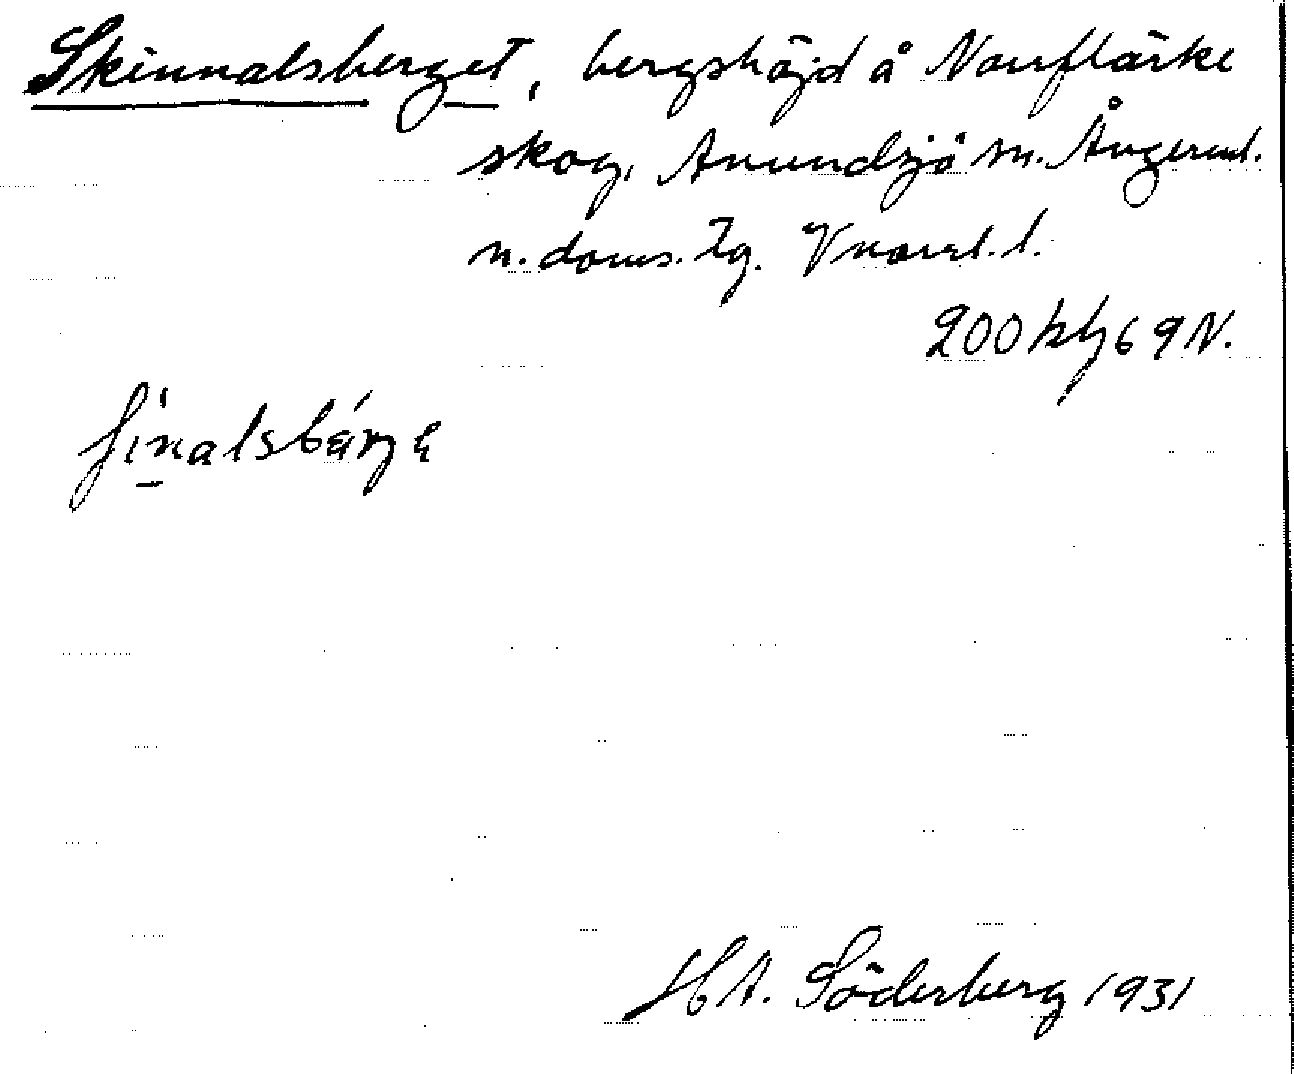 Skinnalsberget, bergshöjd å Norrflärke
skog, Anundsjö sn. Ångerml.
n. doms. tg. Vnorrl. l.
200 kbl 69 N.
ʃinalsbärjɛ
H A. Söderberg 1931